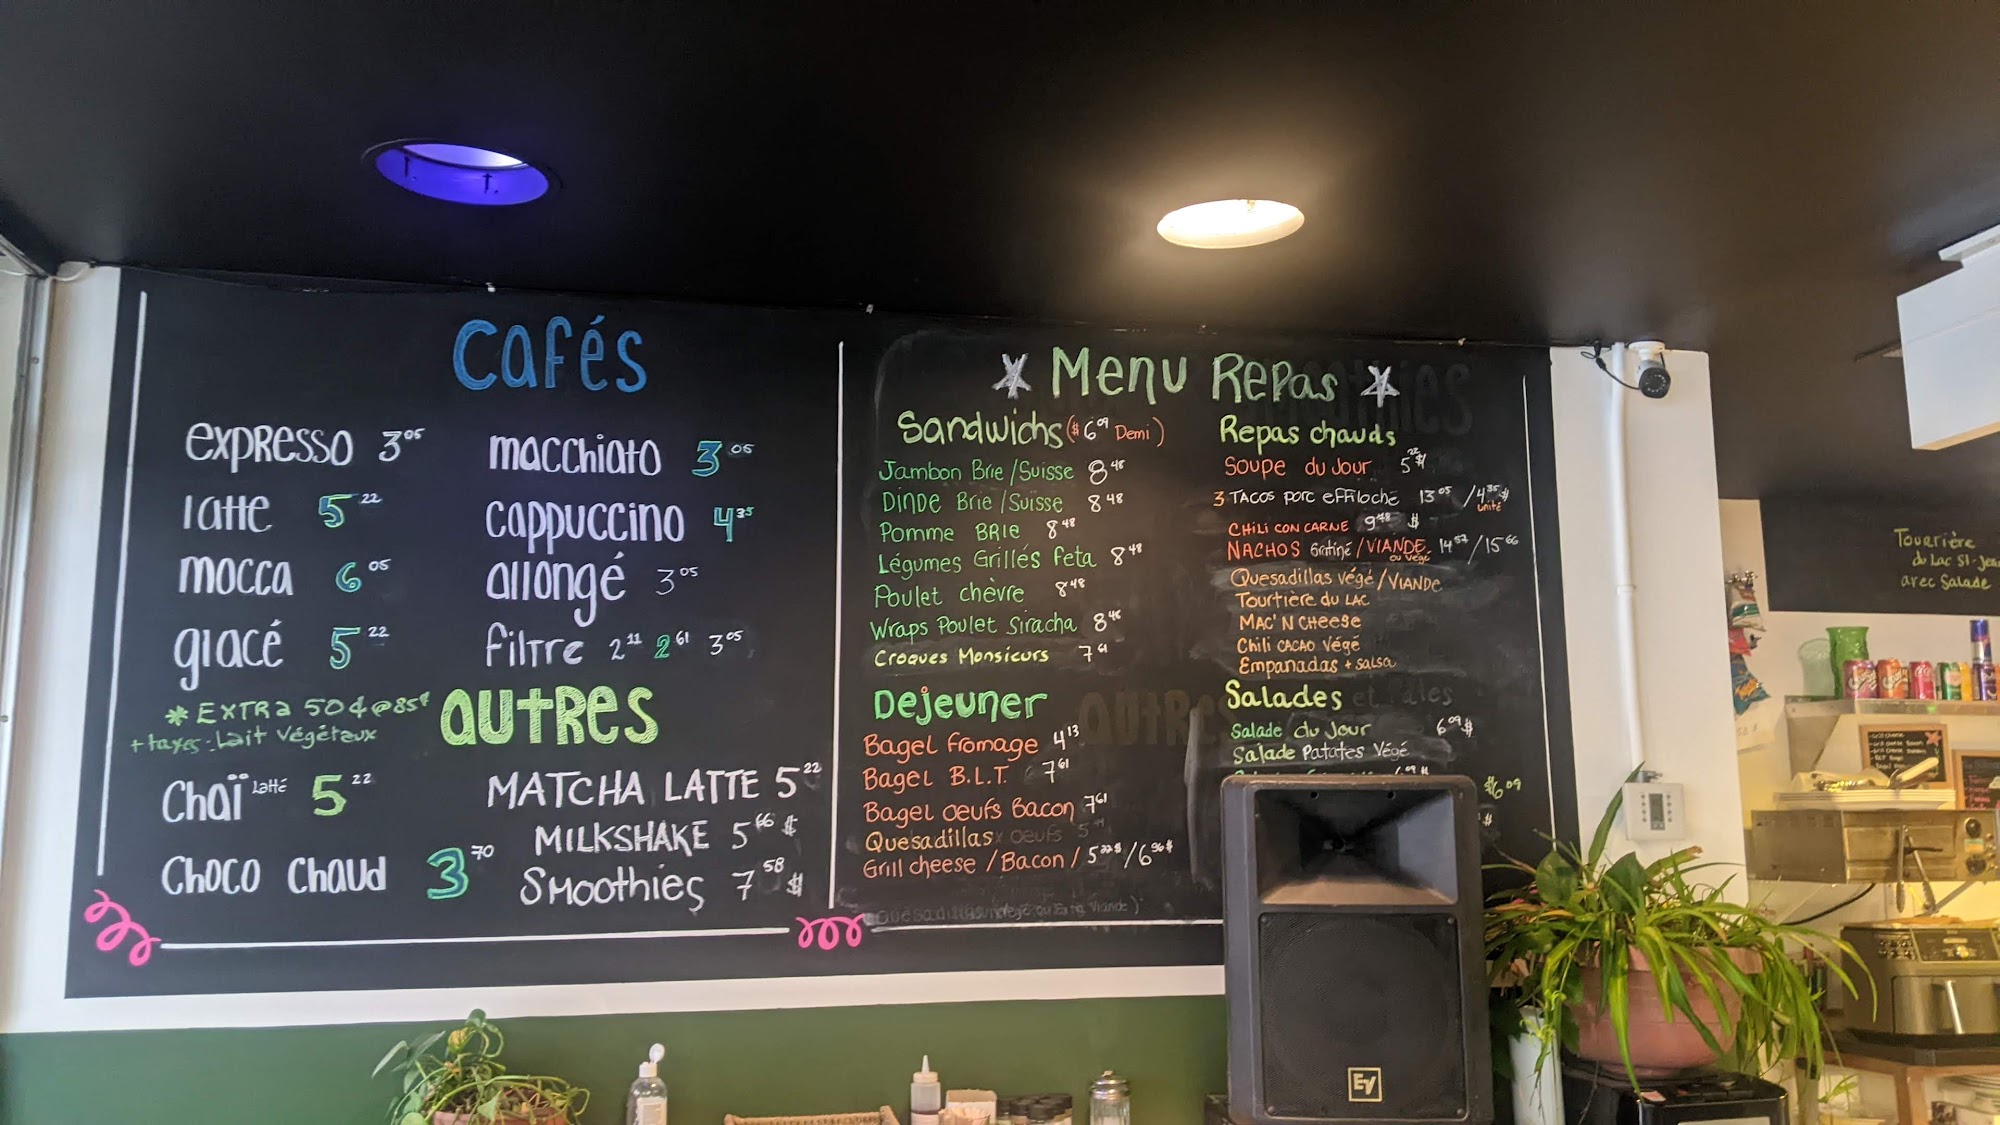 Cafés
expresso 3 05
latte 5 22
mocca 6 05
glacé 5 22
macchiato 3 05
cappuccino 4 35
allongé 3 05
filtre 2 11 2 61 3 05
* EXTRA 50¢ @ 85¢
+ taxes. Lait Végétaux
autres
Chaï Latté 5 22
Choco Chaud 3 70
MATCHA LATTE 5 22
MILKSHAKE 5 66 $
Smoothies 7 58 $
Menu Repas
Sandwichs ($ 6 09 Demi)
Jambon Brie/Suisse 8 48
Dinde Brie/Suisse 8 48
Pomme BRIE 8 48
Légumes Grillés feta 8 48
Poulet chèvre 8 48
Wraps Poulet Siracha 8 48
Croques Monsieurs 7 61
Dejeuner
Bagel fromage 4 13
Bagel B.L.T. 7 61
Bagel oeufs Bacon 7 61
Quesadillas oeufs 5
Grill cheese / Bacon / 5 22$ / 6 96$
Repas chauds
Soupe du Jour 5 22 $
3 TACOS porc effiloché 13 05 / 4 35 $ unité
CHILI CON CARNE 9 78 $
NACHOS Gratiné / VIANDE ou végé 14 57 / 15 66
Quesadillas végé / VIANDE
Tourtière du LAC
MAC' N CHeese
Chili CACAO Végé
Empanadas + salsa
Salades
Salade du Jour 6 09 $
Salade Patates Végé
6 09 $
$6 09
EV
Tourtière
du Lac St-Jean
avec salade